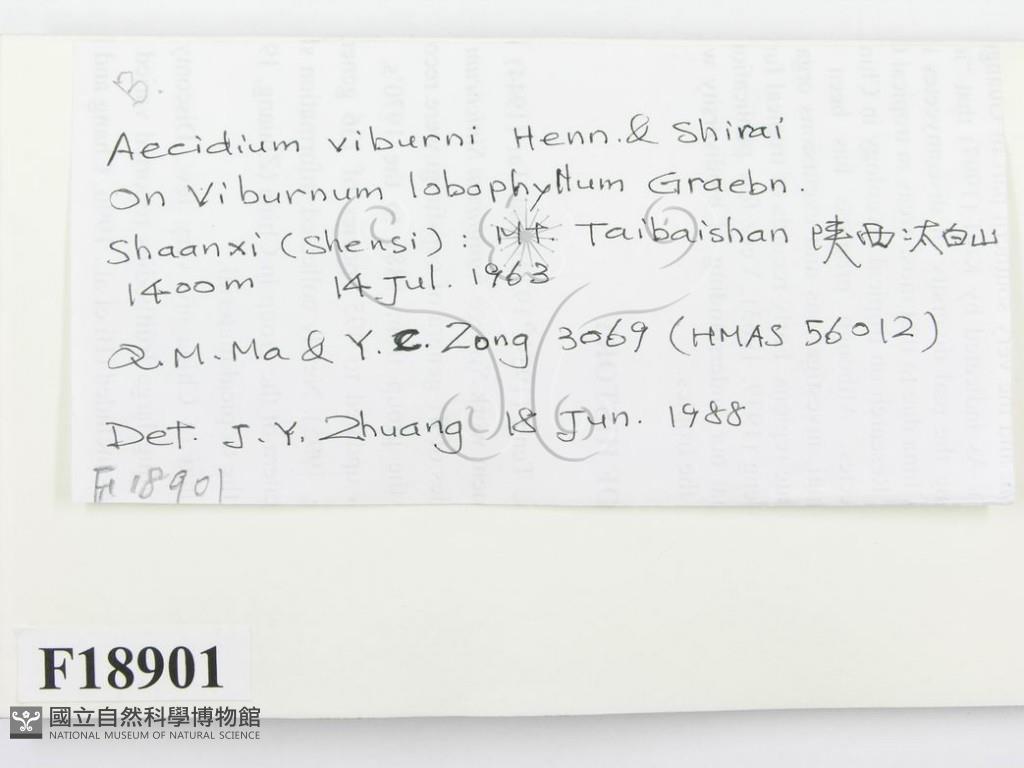 B.
Aecidium viburni Henn. & Shirai
On Viburnum lobophyllum Graebn.
Shaanxi (Shensi): Mt. Taibaishan 陕西太白山
1400m 14 Jul. 1963
Q.M.Ma & Y.C. Zong 3069 (HMAS 56012)
Det. J.Y. Zhuang 18 Jun. 1988
F18901
F18901
國立自然科學博物館
NATIONAL MUSEUM OF NATURAL SCIENCE